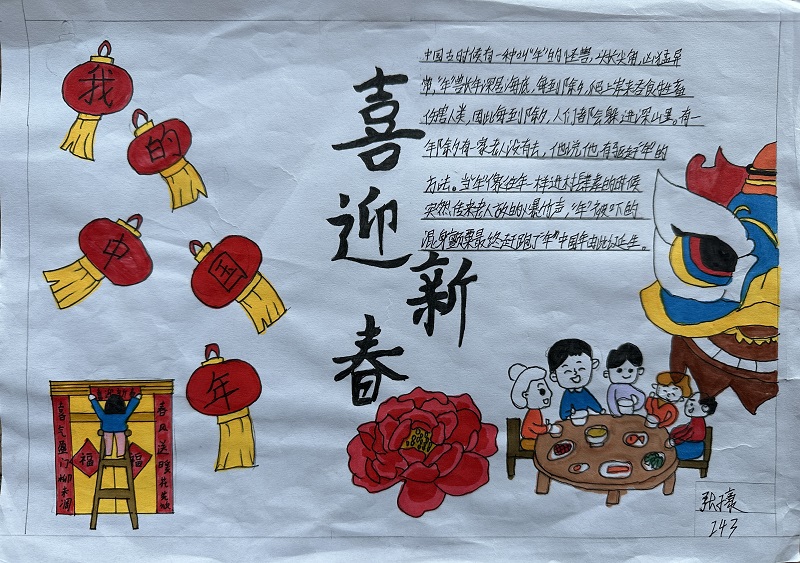 我
的
中
国
年
喜
迎
新
春
中国古时候有一种叫"年"的怪兽，头长尖角，凶猛异
常，"年"兽长年深居海底，每到除夕，爬上岸来吞食牲畜
伤害人类，因此每到除夕，人们都会躲进深山里。有一
年除夕有一家老人没有去，他说他有驱赶"年"的
方法。当"年"像往年一样进村肆虐的时候
突然传来老人放的爆竹声，"年"被吓的
混身颤栗最终赶跑了"年"中国年由此诞生。
春风送暖
喜气盈门柳
福
福
243